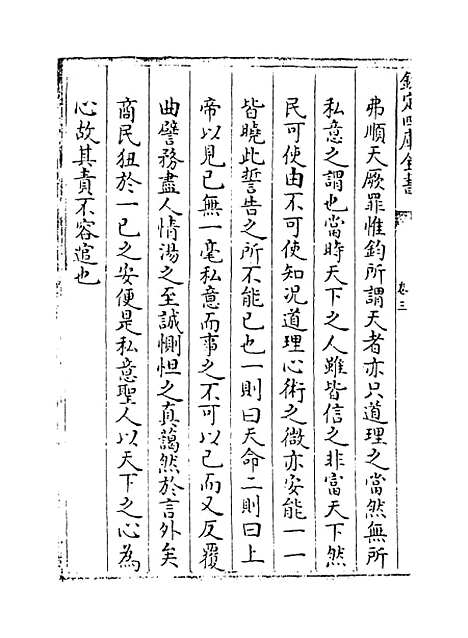 欽定四庫全書
卷三
弗順天厥罪惟鈞所謂天者亦只道理之當然無所
私意之謂也當時天下之人雖皆信之非富天下然
民可使由不可使知況道理心術之微亦安能一一
皆曉此誓告之所不能已也一則曰天命二則曰上
帝以見已無一毫私意而事之不可以已而又反覆
曲譬務盡人情湯之至誠惻怛之真藹然於言外矣
商民狃於一已之安便是私意聖人以天下之心為
心故其責不容逭也